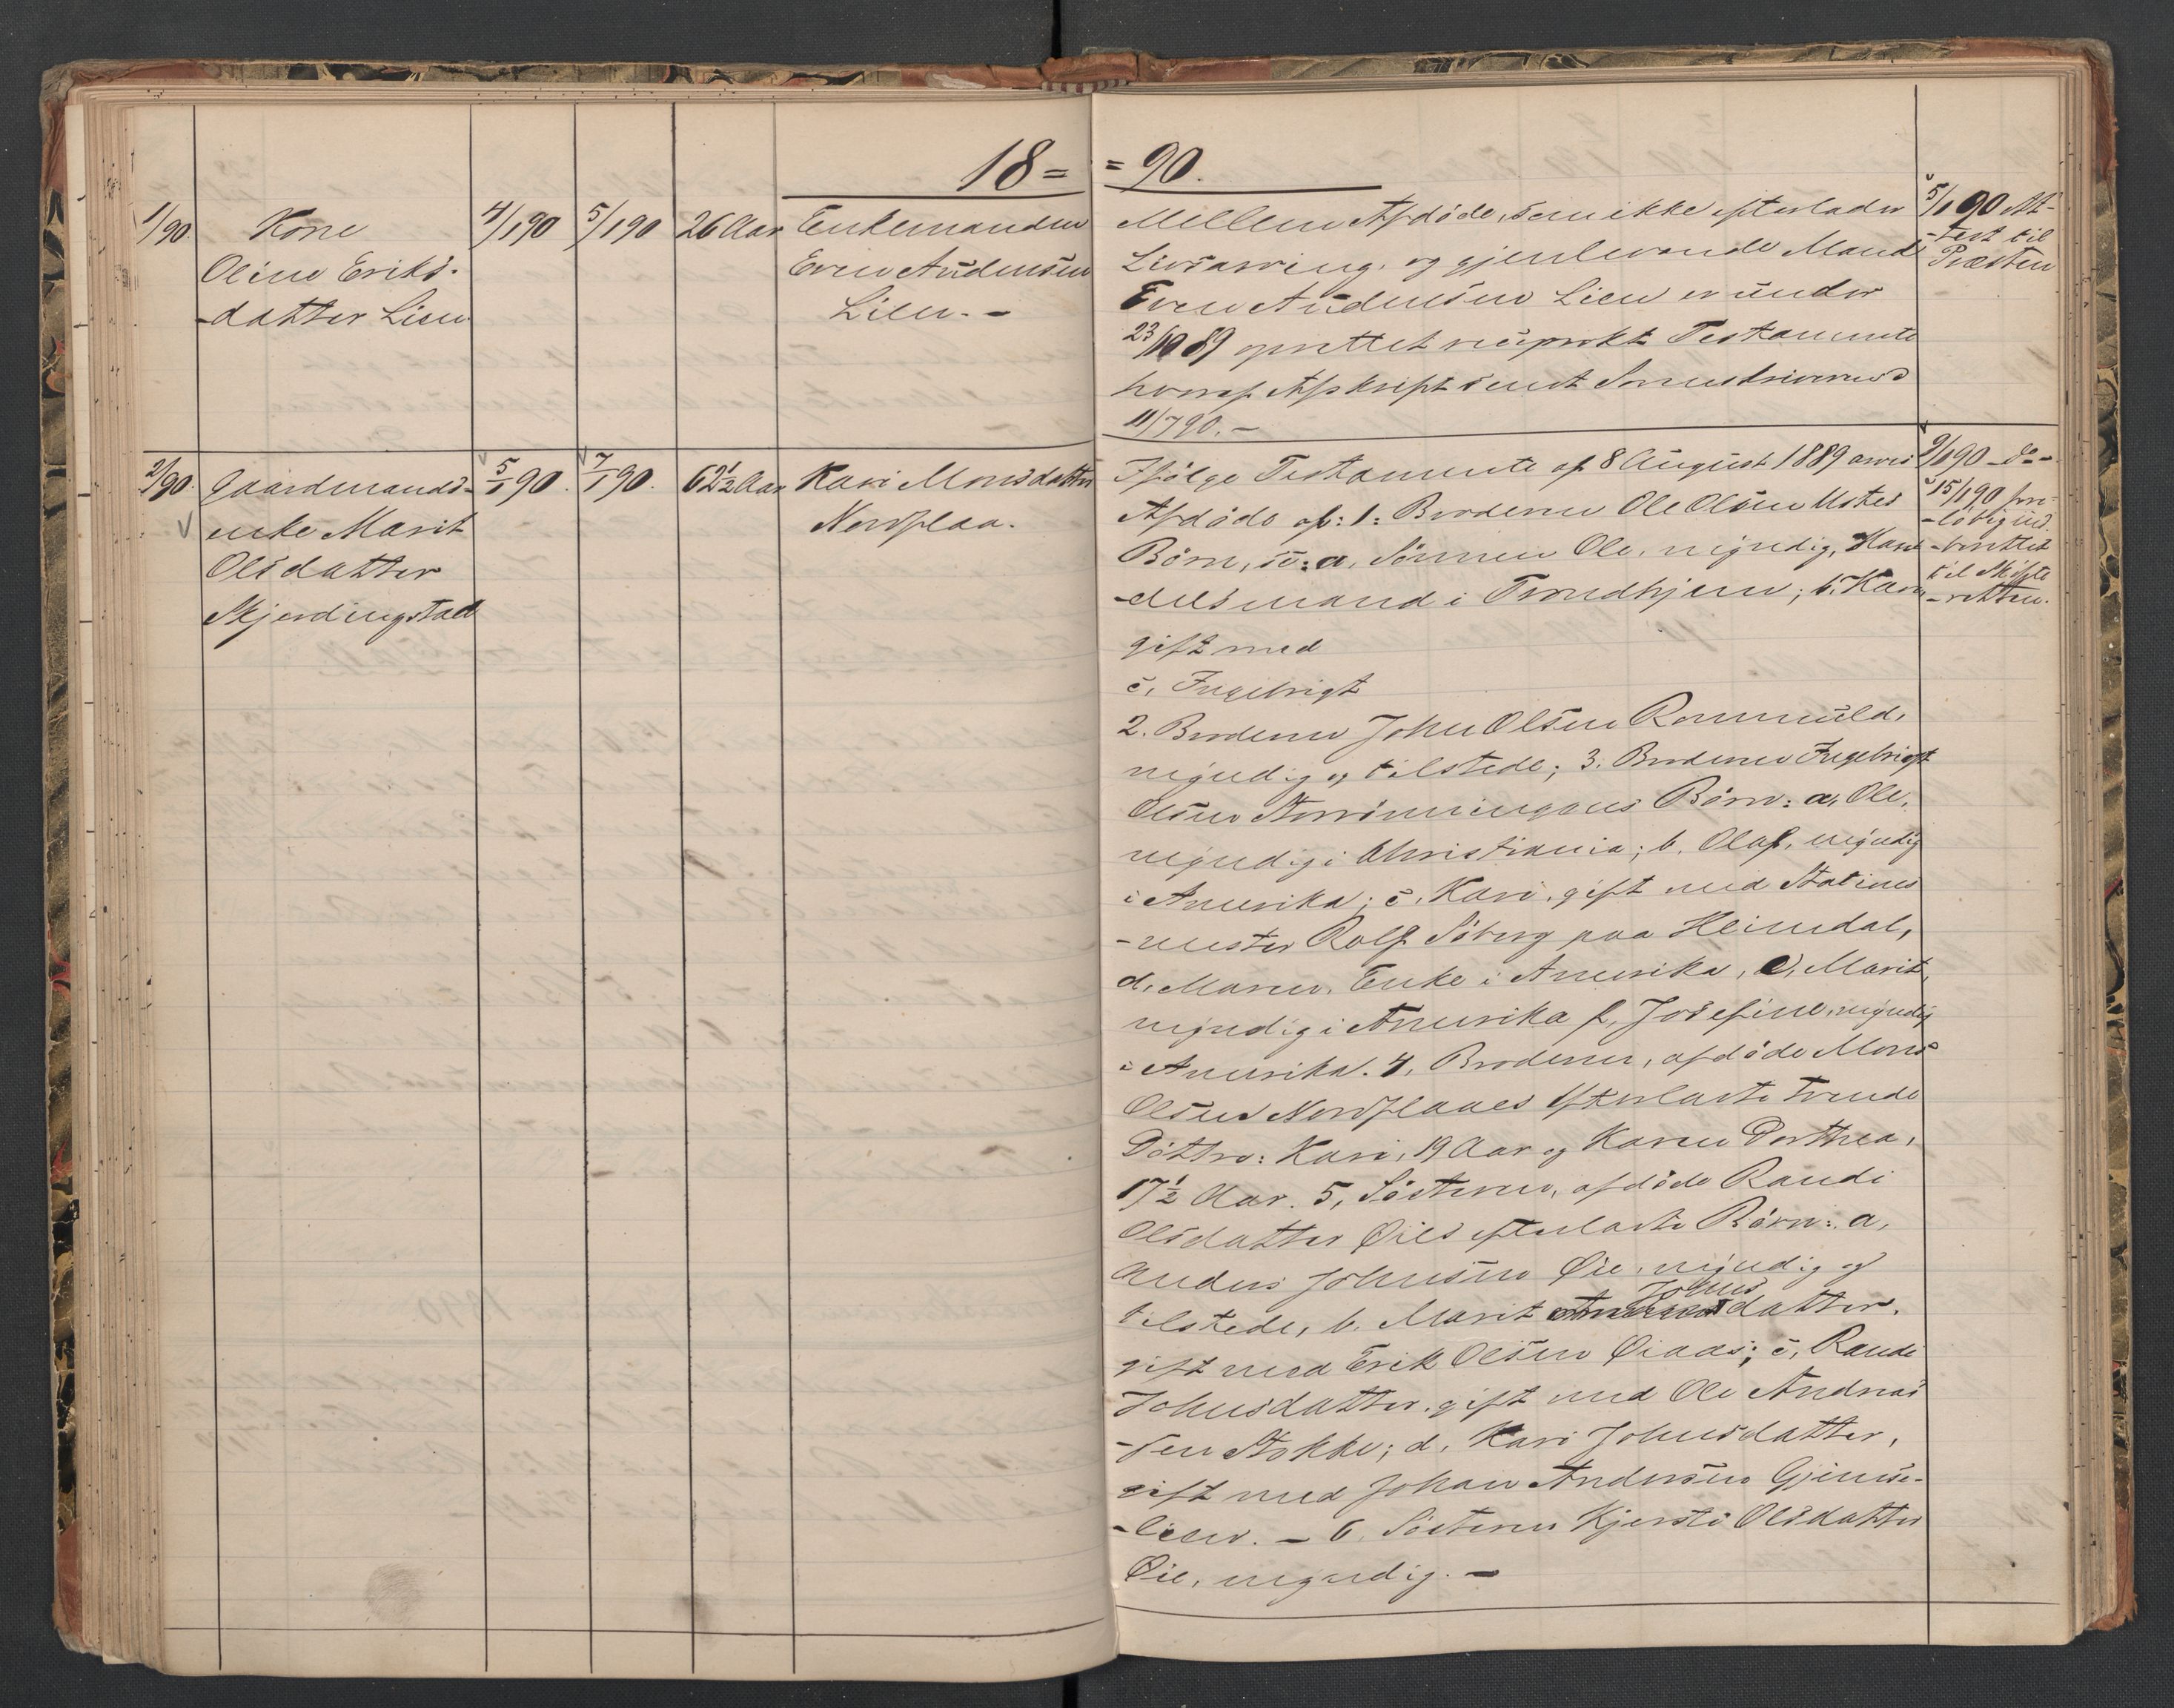 18=
=90.
1/90.
Kone
Oline Eriks-
-datter Lien
4/1 90
5/1 90
26 Aar
Enkemanden
Even Andersen
Lien. -
Mellem Afdøde, som ikke efterlader
Livsarving, og gjenlevende Mand
Even Andersen Lien er under
23/10 89 oprettet reciprokt Testamente
hvoraf Afskrift sendt Sorenskriveren
11/7 90. -
5/1 90 At-
-test til
Præsten
2/90.
Gaardmands-
enke Marit
Olsdatter
Skjerdingstad
5/1 90.
7/1 90.
62 1/2 Aar
Kari Monsdatter
Nordflaa.
Ifølge Testamente af 8 August 1889 arves
Afdøde af: 1: Broderen Ole Olsen
Børn, s: a, Sønnen Ole, myndig, Han-
-delsmand i Trondhjem; b. Karen
gift med
c, Ingebrigt
2. Broderen John Olsen Rommuld,
myndig og tilstede; 3. Broderen Ingebrigt
Olsen Børn: a, Ole,
myndig i Christiania; b. Olaf, myndig
i Amerika; c, Kari, gift med Stations
-mester Rolf Søberg paa Heimdal,
d, Maren, Enke i Amerika, e, Marit,
myndig i Amerika f, Josefine, myndig
i Amerika. 4, Broderen, afdøde Mons
Olsen Nordflaaes efterladte tvende
Døttre: Kari, 19 Aar og Karen Dorthea,
17 1/2 Aar. 5, Søsteren, afdøde Randi
Olsdatter Øies efterladte Børn: a,
Anders Johnsen Øie, myndig og
tilstede, b. Marit Johnsdatter,
gift med Erik Olsen Øiaas; c, Randi
Johnsdatter, gift med Ole Andreas
-sen Stokke; d, Kari Johnsdatter,
gift med Johan Andersen Gimse-
-lien. - 6. Søsteren Kjersti Olsdatter
Øie, myndig. -
9/1 90 - do -
15/1 90 fore-
-løbig ind-
-berettet
til Skifte
-retten.